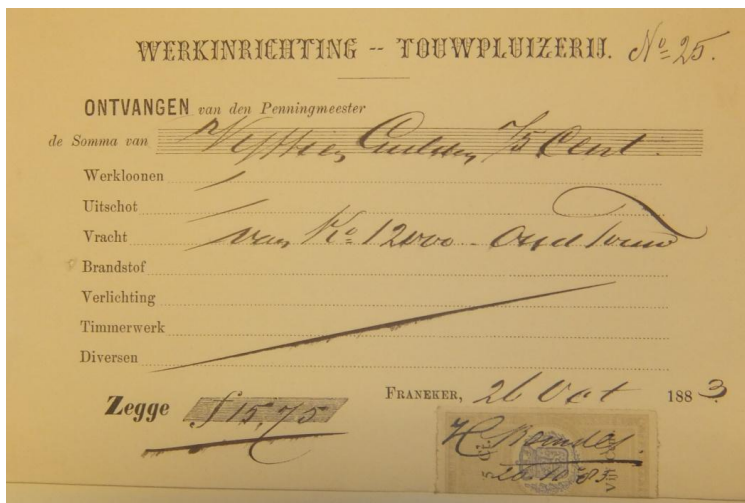 WERKINRICHTING -- TOUWPLUIZERIJ. No 25.
ONTVANGEN van den Penningmeester
de Somma van Vijftien Gulden 75 Cent.
Werkloonen
Uitschot
Vracht van Ko 12000 - Oud Touw
Brandstof
Verlichting
Timmerwerk
Diversen
Zegge ƒ 15,75
FRANEKER, 26 Oct 1883
5 CT
H.